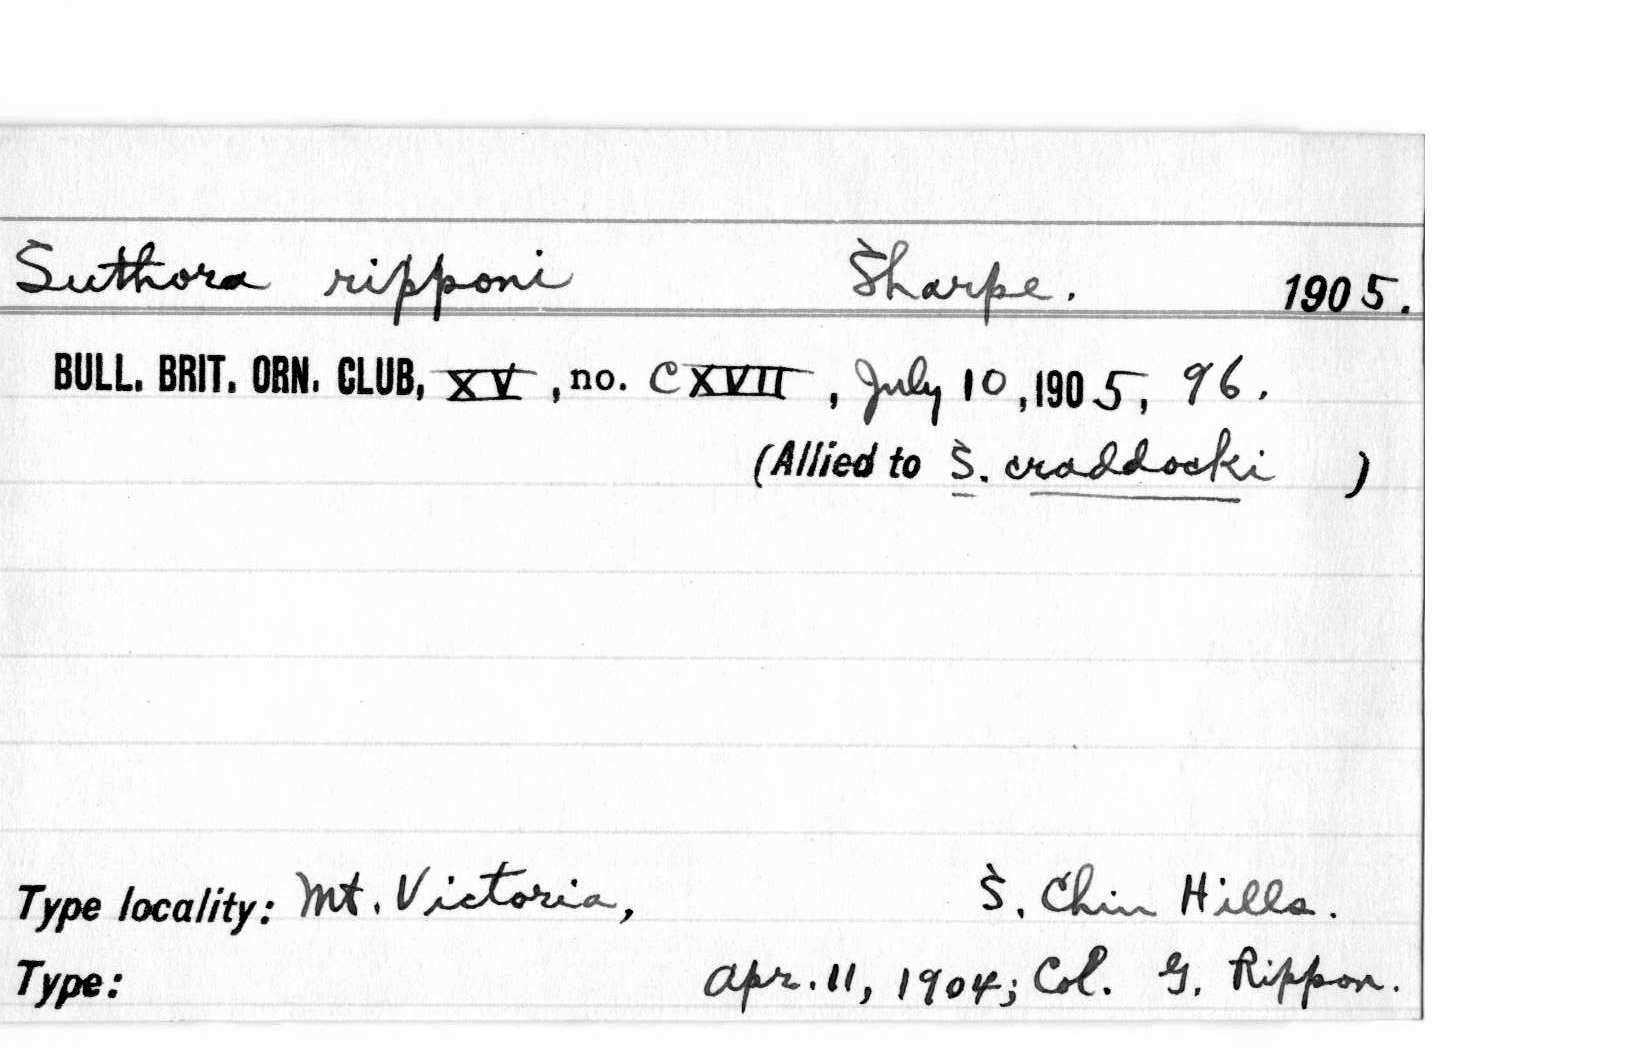 Suthora ripponi Sharpe. 1905.
BULL. BRIT. ORN. CLUB, XV, no. CXVII, July 10, 1905, 96.
(Allied to S. craddocki )
Type locality: Mt. Victoria, S. Chin Hills.
Type: Apr. 11, 1904; Col. G. Rippon.